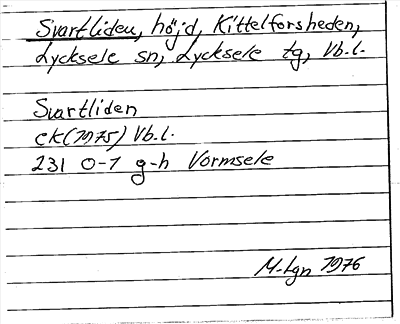 Svartliden, höjd, Kittelforsheden,
Lycksele sn, Lycksele tg, Vb.l.
Svartliden
ek(1975) Vb.l.
231 0-1 g-h Vormsele
M-Lgn 1976